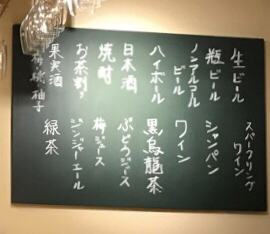 生ビール
瓶ビール
ノンアルコール
ビール
ハイボール
日本酒
焼酎
お茶割り
果実酒
柚子
スパークリング
ワイン
シャンパン
ワイン
黒烏龍茶
ぶどうジュース
梅ジュース
ジンジャーエール
緑茶